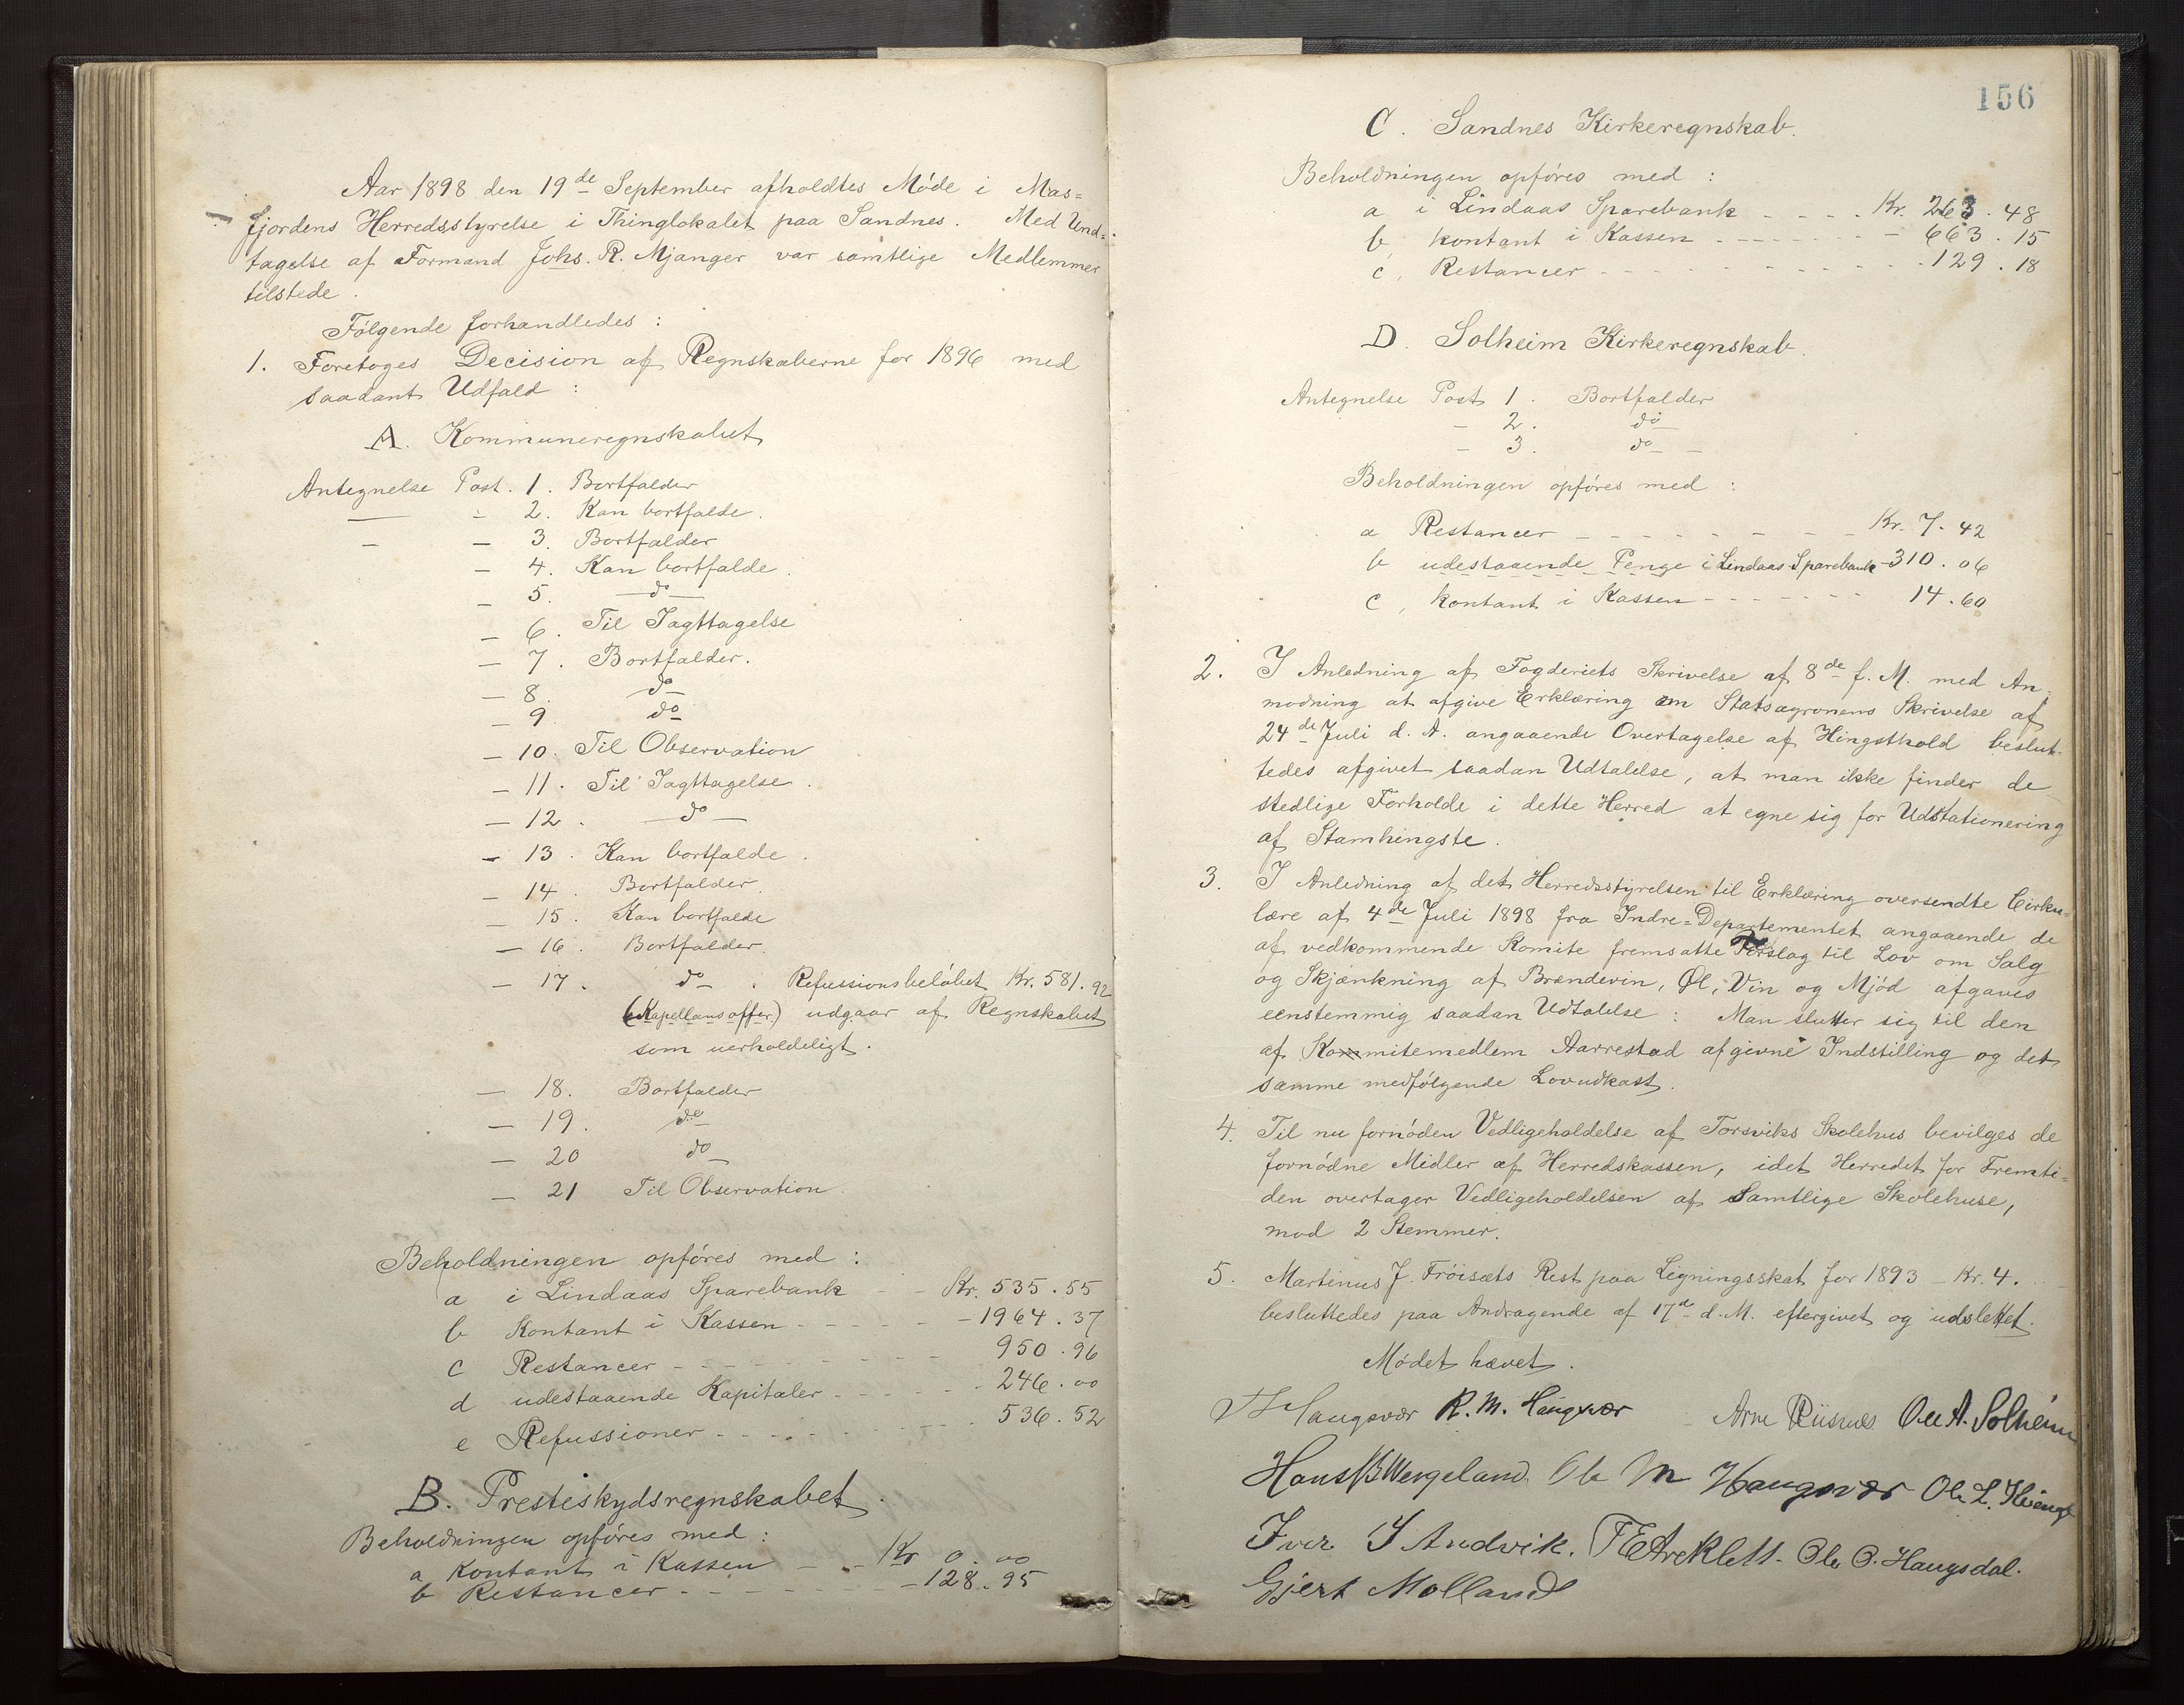 Aar 1898 den 19de September afholdtes Møde i Mas=
fjordens Herredsstyrelse i Thinglokalet paa Sandnes. Med Und=
tagelse af Formand Johs. R. Mjanger var samtlige Medlemmer
tilstede.
Følgende forhandledes:
1. Foretoges Decision af Regnskaberne for 1896 med
saadant Udfald:
A. Kommuneregnskabet
Antegnelse Post. 1. Bortfalder
— - 2. Kan bortfalde.
- — 3. Bortfalder
— 4. Kan bortfalde.
— 5. — do —
— 6. Til Iagttagelse
— 7. Bortfalder.
— 8. do
— 9 do
— 10. Til Observation
— 11. Til Iagttagelse.
— 12. — do —
— 13. Kan bortfalde.
— 14. Bortfalder.
— 15. Kan bortfalde
— 16. Bortfalder.
— 17. do. Refussionsbeløbet Kr. 581.92
(Kapellansoffer) udgaar af Regnskabet
som uerholdeligt.
— 18. Bortfalder
— 19. do
— 20 do
— 21 Til Observation.
Beholdningen opføres med:
a i Lindaas Sparebank - - Kr. 535.55
b Kontant i Kassen - - - - - 1964.37
c Restancer - - - - - 950.96
d udestaaende Kapitaler - - - - 246.00
e Refussioner - - - - - 536.52
B. Presteskydsregnskabet.
Beholdningen opføres med:
a Kontant i Kassen — - Kr 0.00
b Restancer - - - - - 128.95
156
C. Sandnes Kirkeregnskab.
Beholdningen opføres med:
a i Lindaas Sparebank - - - - Kr. 263.48
b, kontant i Kassen - - - - - 663.15
c, Restancer - - - - - 129.18
D. Solheim Kirkeregnskab.
Antegnelse Post 1. Bortfalder
— 2. do
— 3. do
Beholdningen opføres med:
a Restancer - - - - - Kr. 7.42
b udestaaende Penge i Lindaas Sparebank - 310.06
c, kontant i Kassen - - - - - 14.60
2. I Anledning af Fogderiets Skrivelse af 8de f. M. med An-
modning at afgive Erklæring om Statsagronens Skrivelse af
24de Juli d. A. angaaende Overtagelse af Hingsthold beslut-
tedes afgivet saadan Udtalelse, at man ikke finder de
stedlige Forholde i dette Herred at egne sig for Udstationering
af Stamhingste.
3. I Anledning af det Herredsstyrelsen til Erklæring oversendte Cirku-
lære af 4de Juli 1898 fra Indre=Departementet angaaende de
af vedkommende Komite fremsatte Forslag til Lov om Salg
og Skjænkning af Brændevin, Øl, Vin og Mjød afgaves
eenstemmig saadan Udtalelse: Man slutter sig til den
af Kommitemedlem Aarrestad afgivne Indstilling og det
samme medfølgende Lovudkast.
4. Til nu fornøden Vedligeholdelse af Torsviks Skolehus bevilges de
fornødne Midler af Herredskassen, idet Herredet for Fremti-
den overtager Vedligeholdelsen af Samtlige Skolehuse,
mod 2 Stemmer.
5. Martinus J. Frøisæts Rest paa Ligningsskat for 1893 - Kr. 4.
besluttedes paa Andragende af 17de d. M. eftergivet og udslettet.
Mødet hævet.
Haugsvær R. M. Haugsvær Arne Riisnes Ole A. Solheim
Hans B Wergeland Ole M Haugsvær Ole L.
Iver I Andvik. Ole O. Haugsdal.
Gjert Molland